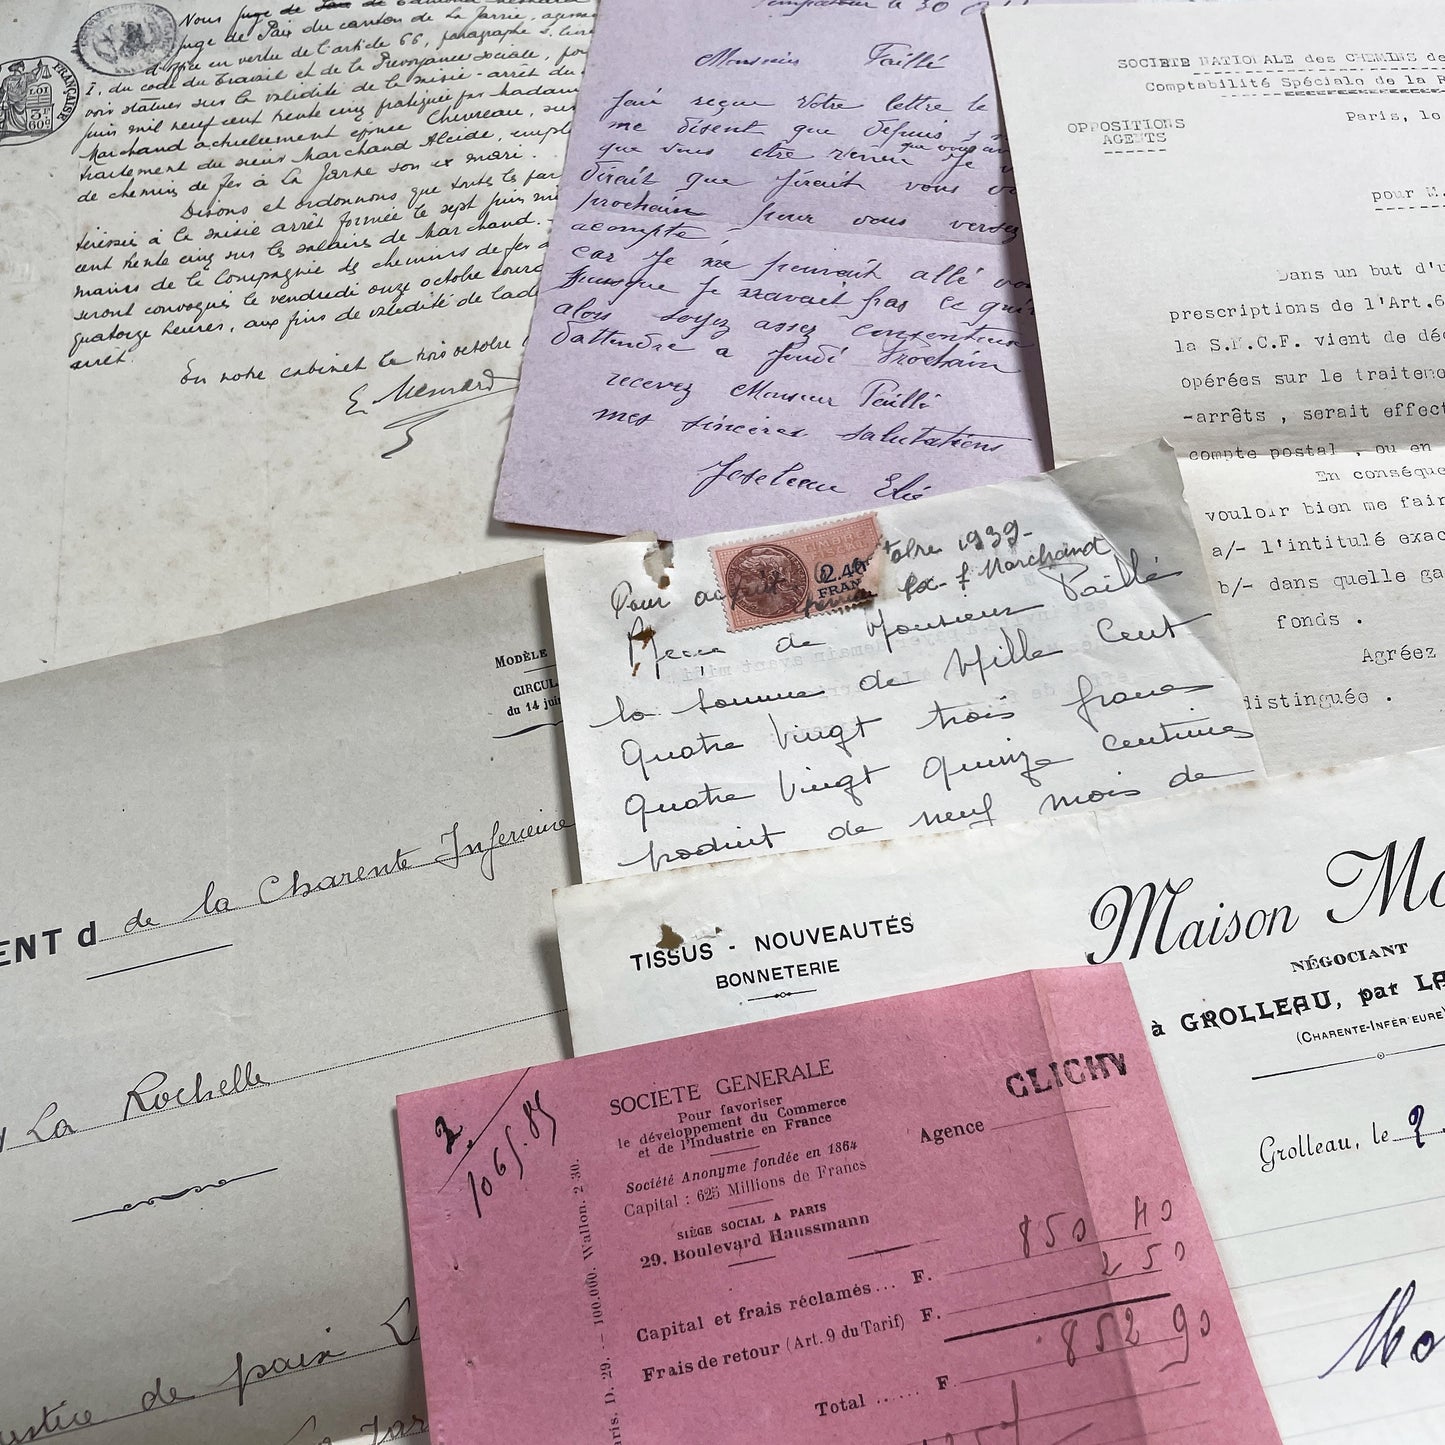 Nous juge de
juge de Paix du canton de La Jarrie,
d'office en vertu de l'article 66, paragraphe
I, du code du Travail et de la Prevoyance sociale,
statuer sur la validité de la saisie-arrêt du
juin mil neuf cent trente cinq pratiquée par Madame
Marchand actuellement epouse Chevreau, sur
traitement du sieur Marchand Alcide,
de chemins de fer à La Jarrie son ex mari.
Disons et ordonnons que toutes les
à la saisie arrêt formée le sept juin
cent trente cinq sur les salaires de Marchand.
mains de la Compagnie des chemins de fer
seront convoqués le vendredi onze octobre
quatorze heures, aux fins de validité de
arrêt.
En notre cabinet le trois octobre
E Menard
FRANÇAISE
LOI
60c
30
Monsieur Taillé
J'ai reçue votre lettre le
me disent que depuis
que vous
dirait que j'irait vous
prochain pour vous
acompte
car je ne pouvait allé
puisque je n'avait pas ce
alors soyez assez
d'attendre a jeudi prochain
recevez Monsieur Taillé
mes sincères salutations
SOCIETE NATIONALE des CHEMINS de
Comptabilité Spéciale de la
OPPOSITIONS
AGENTS
Paris, le
pour M.
Dans un but d'u
prescriptions de l'Art.6
la S.N.C.F. vient de déc
opérées sur le traiteme
-arrêts , serait effect
compte postal , ou en
En conséque
vouloir bien me fair
a/- l'intitulé exac
b/- dans quelle ga
fonds .
Agréez
distinguée .
Pour 1939-
2.40
FRAN
Marchand
de Monsieur Taillé
la somme de Mille Cent
Quatre vingt trois francs
Quatre vingt quinze centimes
produit de neuf mois de
MODÈLE
CIRCUL
du 14 juin
ENT d de la Charente Inferieure
La Rochelle
ustice de paix
TISSUS - NOUVEAUTÉS
BONNETERIE
Maison Mo
NÉGOCIANT
à GROLLEAU, par LA
(CHARENTE-INFÉRIEURE)
Grolleau, le
Mo
2
1065.85
SOCIETE GENERALE
Pour favoriser
le développement du Commerce
et de l'Industrie en France
Société Anonyme fondée en 1864
Capital : 625 Millions de Francs
SIÈGE SOCIAL A PARIS
29, Boulevard Haussmann
CLICHY
Agence
Capital et frais réclamés ... F. 850 40
Frais de retour (Art. 9 du Tarif) F. 2 50
Total ...... F 852 90
Paris. D. 29. — 100.000. Wallon. 2-30.